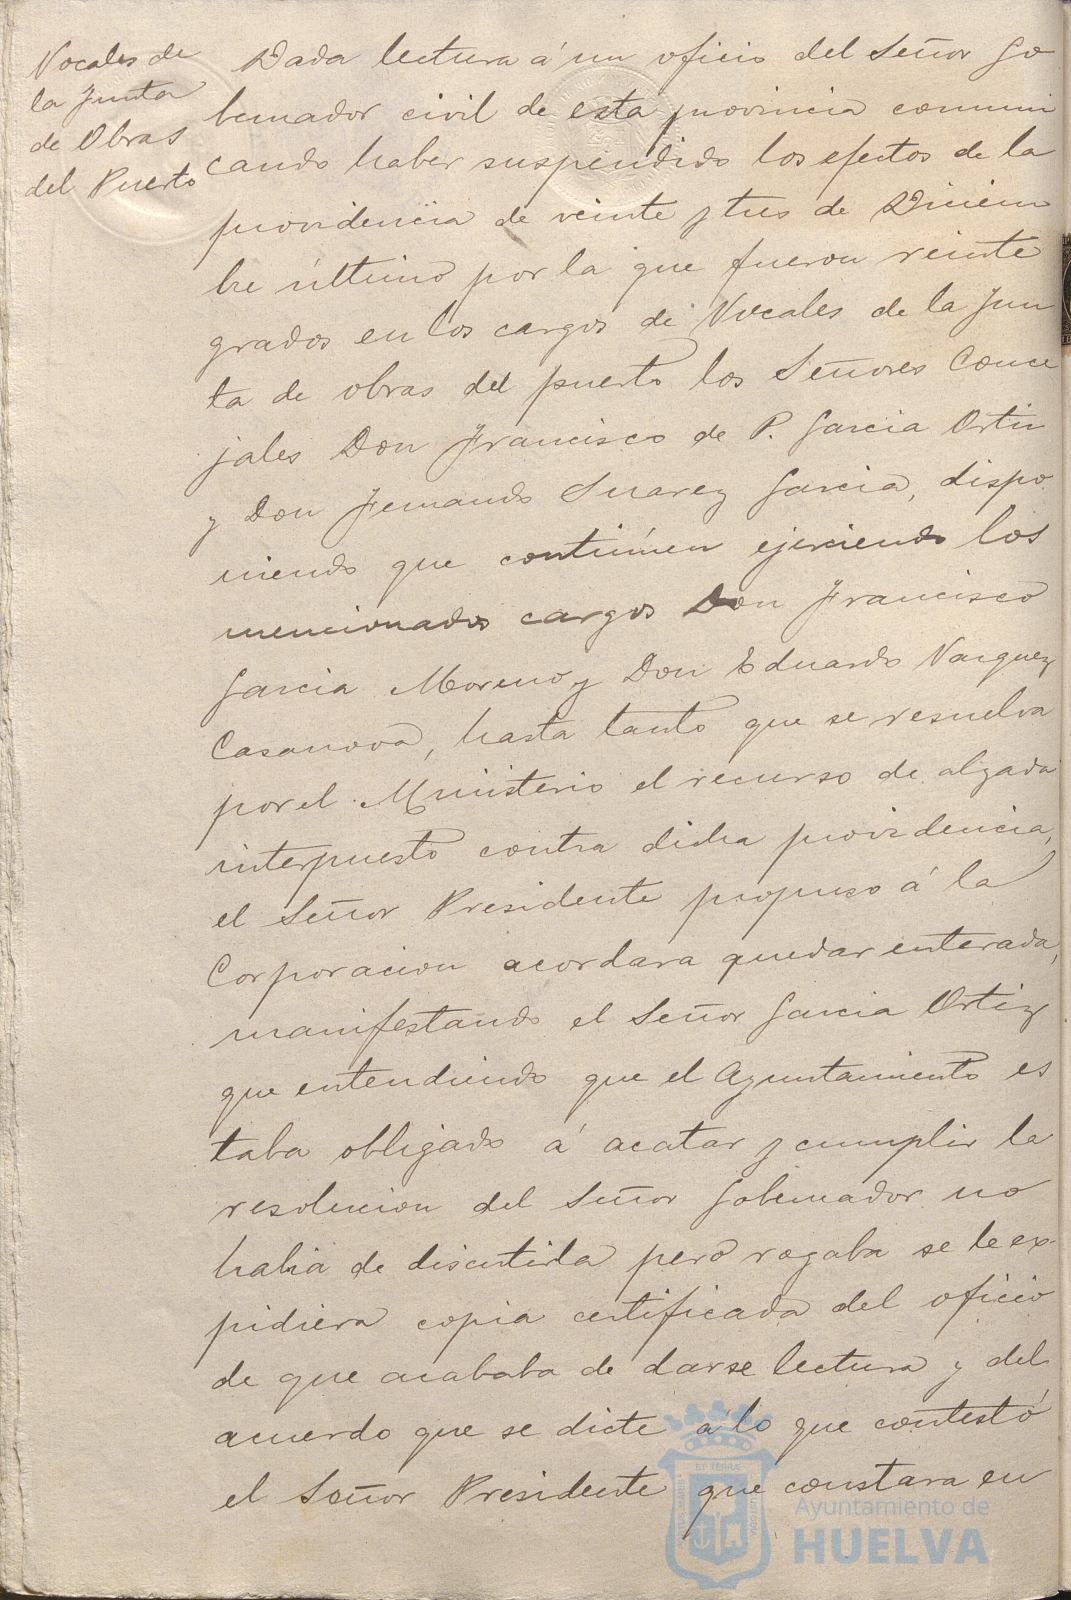 Vocales de
la Junta
de Obras
del Puerto
Dada lectura á un oficio del Señor Go
bernador civil de esta provincia comuni
cando haber suspendido los efectos de la
providencia de veinte y tres de Diciem
bre último por la que fueron reinte
grados en los cargos de Vocales de la Jun
ta de obras del puerto los Señores Conce
jales Don Francisco de P. Garcia Ortiz
y Don Fernando Suarez Garcia, dispo
niendo que continúen ejerciendo los
mencionados cargos Don Francisco
Garcia Moreno y Don Eduardo Vazquez
Casanova, hasta tanto que se resuelva
por el Ministerio el recurso de alzada
interpuesto contra dicha providencia,
el Señor Presidente propuso á la
Corporacion acordara quedar enterada,
manifestando el Señor Garcia Ortiz
que entendiendo que el Ayuntamiento es
taba obligado á acatar y cumplir la
resolucion del Señor Gobernador no
habia de discutirla pero rogaba se le ex-
pidiera copia certificada del oficio
de que acababa de darse lectura y del
acuerdo que se dicte á lo que contestó
el Señor Presidente que constara en
Ayuntamiento de
HUELVA